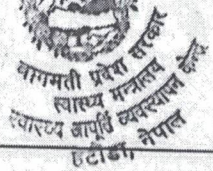 बागमती प्रदेश सरकार
स्वास्थ्य मन्त्रालय
स्वास्थ्य आपूर्ति व्यवस्थापन केन्द्र
हेटौंडा, नेपाल